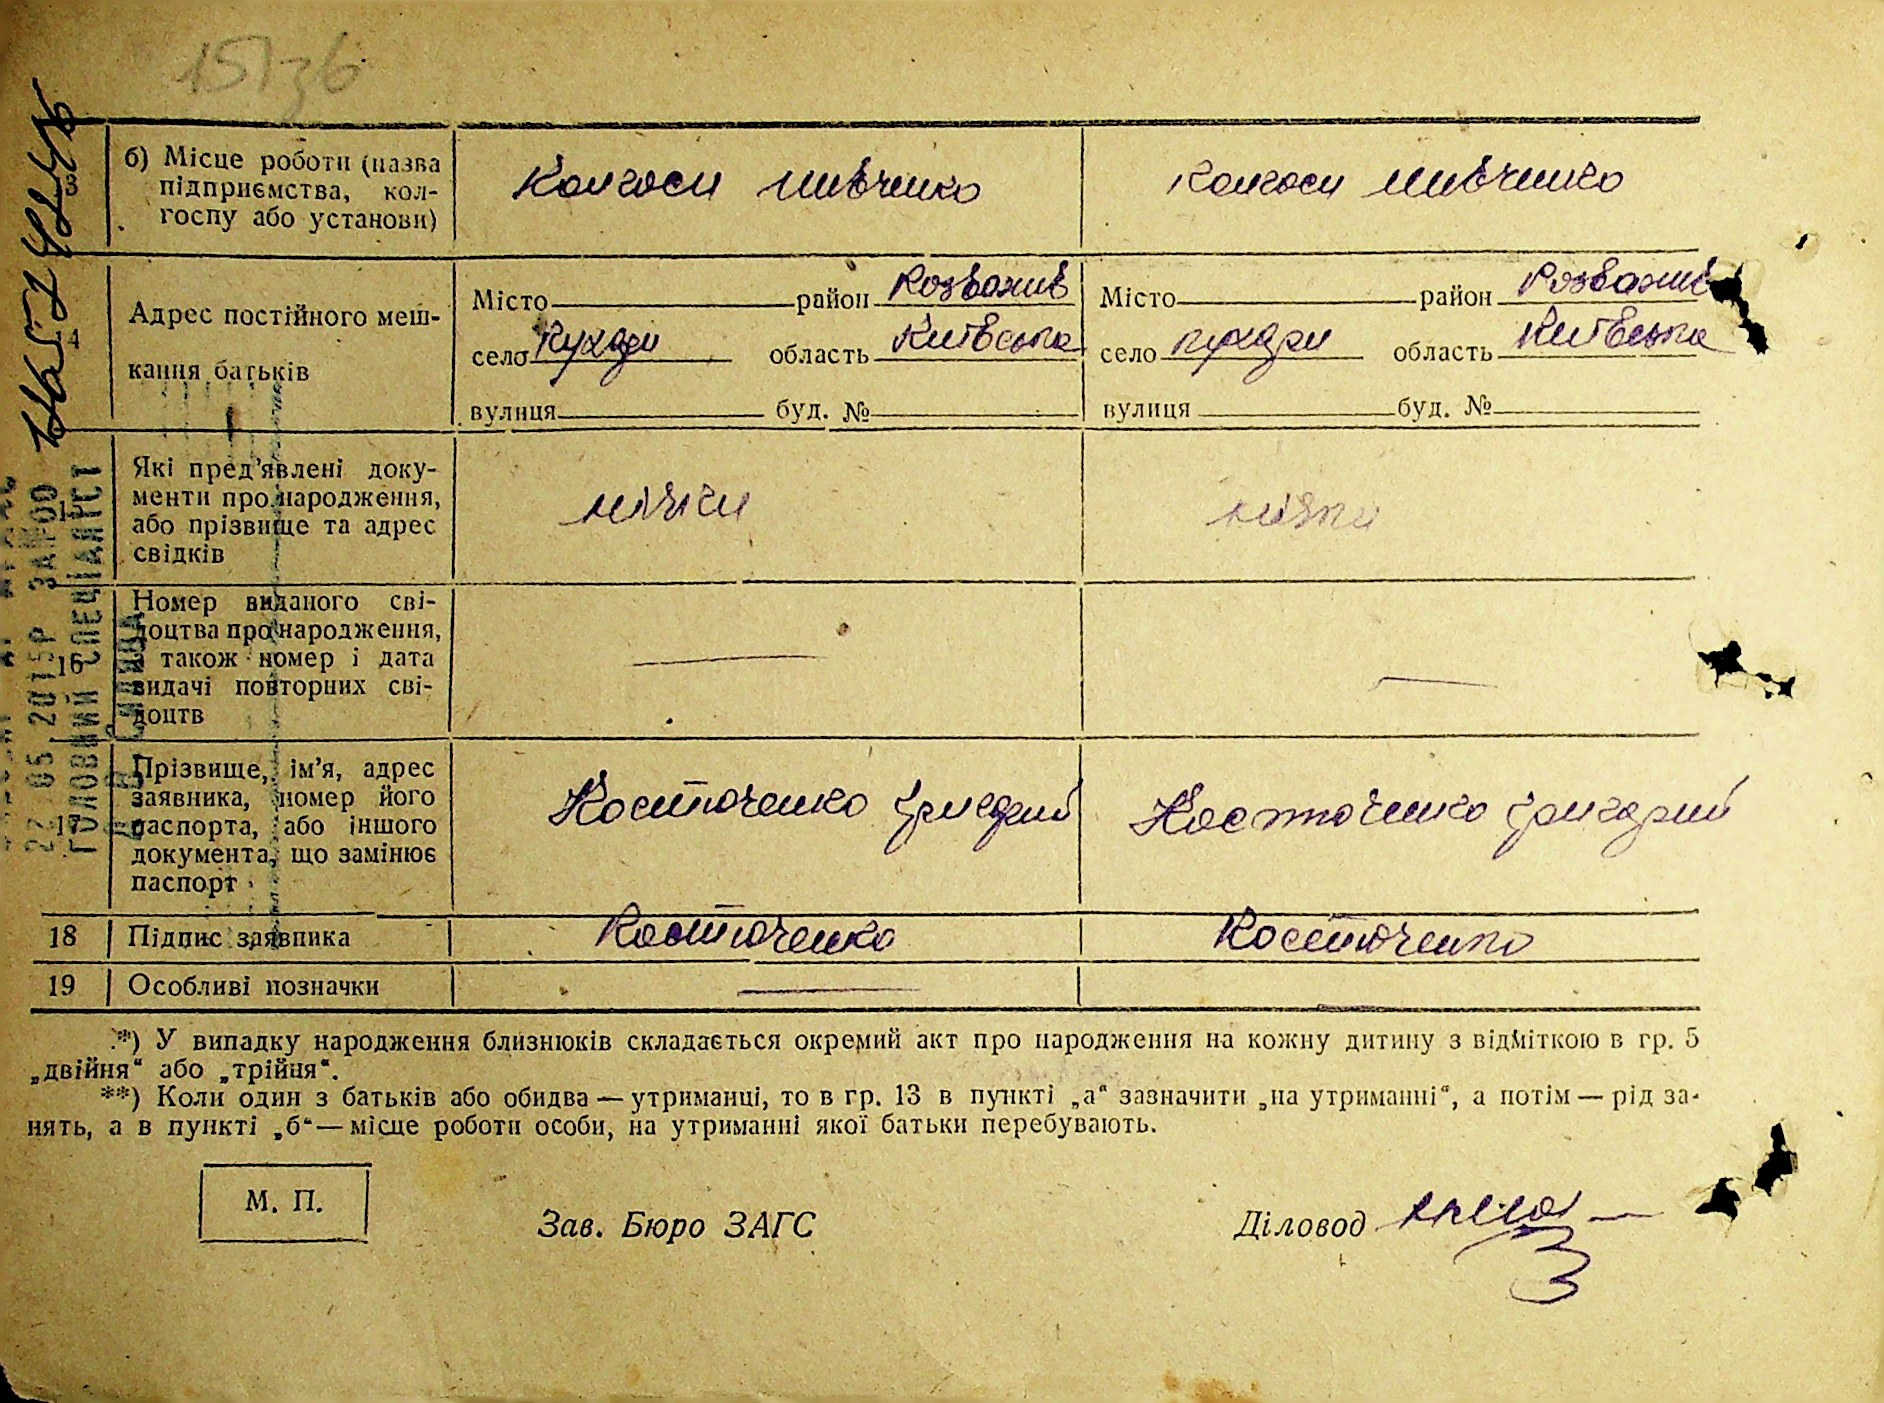 15136
б) Місце роботи (назва
підприємства, кол-
госпу або установи)
колгосп шевченко
колгосп шевченко
Адрес постійного меш-
кання батьків
Місто район Розважив
село пухари область Київська
вулиця буд. №
Місто район Розважив
село пухари область Київська
вулиця буд. №
Які пред'явлені доку-
менти про народження,
або прізвище та адрес
свідків
Номер виданого сві-
доцтва про народження,
також номер і дата
видачі повторних сві-
доцтв
16
17
Прізвище, ім'я, адрес
заявника, номер його
паспорта, або іншого
документа, що замінює
паспорт
Костюченко григорий
Костюченко григорий
18 Підпис заявника Костюченко Костюченко
19 Особливі позначки
*) У випадку народження близнюків складається окремий акт про народження на кожну дитину з відміткою в гр. 5
„двійня“ або „трійня“.
**) Коли один з батьків або обидва — утриманці, то в гр. 13 в пункті „а“ зазначити „на утриманні“, а потім — рід за-
нять, а в пункті „б“ — місце роботи особи, на утриманні якої батьки перебувають.
М. П.
Зав. Бюро ЗАГС
Діловод
22 05 2015Р
ГОЛОВНИЙ СПЕЦІАЛІСТ